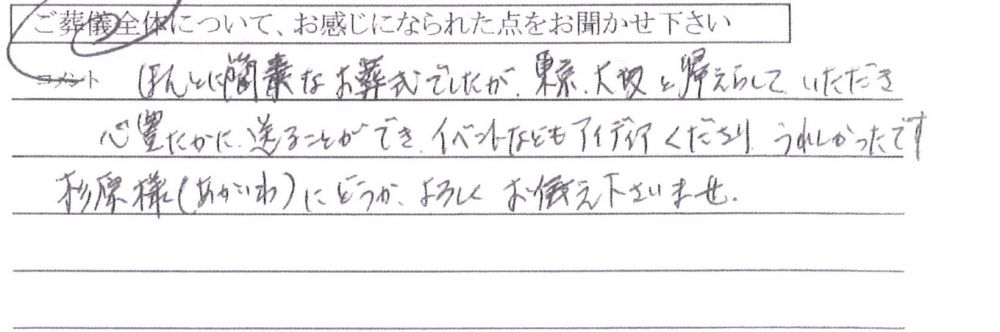 ご葬儀全体について、お感じになられた点をお聞かせ下さい
コメント ほんとに簡素なお葬式でしたが、東京、大阪と帰えらして、いただき
心豊たかに、送ることができ、イベントなどもアイディアくださり、うれしかったです
杉原様(あかいわ)にどうか、よろしく お伝え下さいませ.